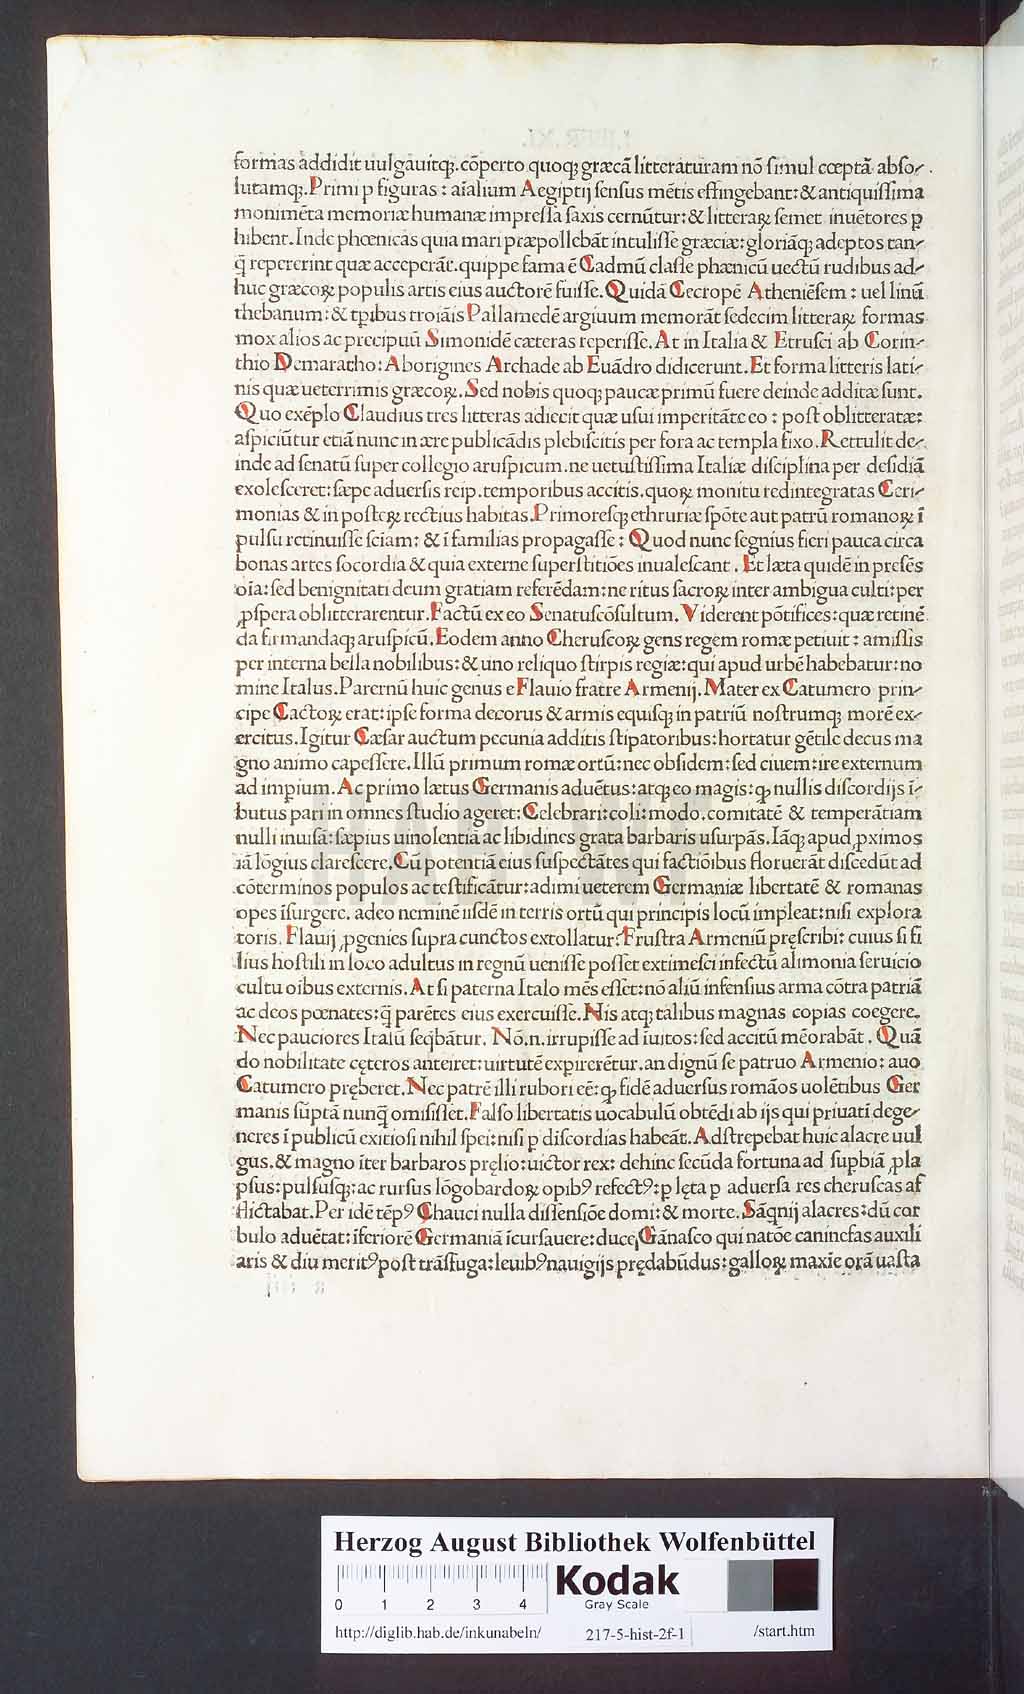 formas addidit uulgauitq̃. cõperto quoq; græcã litteraturam nõ simul cœptã abso⸗
lutamq;. Primi ꝑ figuras : aĩalium Aegiptij sensus mẽtis effingebant: & antiquissima
monimẽta memoriæ humanæ impressa saxis cernũtur: & litteraꝝ semet inuẽtores ꝑ
hibent. Inde phœnicas quia mari præpollebãt intulisse græciæ: gloriãq; adeptos tan⸗
q̃ repererint quæ acceperãt. quippe fama ẽ Cadmũ classe phænicũ uectũ rudibus ad⸗
huc græcoꝝ populis artis eius auctorẽ fuisse. Quidã Cecropẽ Atheniẽsem : uel linũ
thebanum: & tꝑibus troiãis Pallamedẽ argiuum memorãt sedecim litteraꝝ formas
mox alios ac precipuũ Simonidẽ cæteras reperisse. At in Italia & Etrusci ab Corin⸗
thio Demaratho: Aborigines Archade ab Euãdro didicerunt. Et forma litteris lati⸗
nis quæ ueterrimis græcoꝝ. Sed nobis quoq; paucæ primũ fuere deinde additæ sunt.
Quo exẽplo Claudius tres litteras adiecit quæ usui imperitãte eo : post oblitteratæ:
aspiciũtur etiã nunc in ære publicãdis plebiscitis per fora ac templa fixo. Rettulit de⸗
inde ad senatũ super collegio aruspicum. ne uetustissima Italiæ disciplina per desidiã
exolesceret: sæpe aduersis reip. temporibus accitis. quoꝝ monitu redintegratas Ceri⸗
monias & in posteꝝ rectius habitas. Primoresq; ethruriæ spõte aut patrũ romanoꝝ ĩ
pulsu retinuisse sciam: & ĩ familias propagasse : Quod nunc segnius fieri pauca circa
bonas artes socordia & quia externe superstitiões inualescant . Et læta quidẽ in presẽs
oĩa: sed benignitati deum gratiam referẽdam: ne ritus sacroꝝ inter ambigua culti: per
ꝓspera oblitterarentur. Factũ ex eo Senatuscõsultum. Viderent põtifices: quæ retinẽ
da firmandaq; aruspicũ. Eodem anno Cheruscoꝝ gens regem romæ petiuit : amissis
per interna bella nobilibus: & uno reliquo stirpis regiæ: qui apud urbẽ habebatur: no
mine Italus. Paternũ huic genus e Flauio fratre Armenij. Mater ex Catumero prin⸗
cipe Cactoꝝ erat: ipse forma decorus & armis equisq; in patriũ nostrumq; morẽ ex⸗
ercitus. Igitur Cæsar auctum pecunia additis stipatoribus: hortatur gẽtile decus ma
gno animo capessere. Illũ primum romæ ortũ: nec obsidem: sed ciuem: ire externum
ad impium. Ac primo lætus Germanis aduẽtus: atq; eo magis: ꝙ nullis discordijs ĩ⸗
butus pari in omnes studio ageret: Celebrari: coli: modo. comitatẽ & temperãtiam
nulli inuisã: sæpius uinolentiã ac libidines grata barbaris usurpãs. Iãq; apud ꝓximos
iã lõgius clarescere. Cũ potentiã eius suspectãtes qui factiõibus floruerãt discedũt ad
cõterminos populos ac testificãtur: adimi ueterem Germaniæ libertatẽ & romanas
opes ĩsurgere. adeo neminẽ iisdẽ in terris ortũ qui principis locũ impleat: nisi explora
toris. Flauij ꝓgenies supra cunctos extollatur? Frustra Armeniũ pręscribi: cuius si fi
lius hostili in loco adultus in regnũ uenisse posset extimesci infectũ alimonia seruicio
cultu oĩbus externis. At si paterna Italo mẽs esset: nõ aliũ infensius arma cõtra patriã
ac deos pœnates: q̃ parẽtes eius exercuisse. Nis atq; talibus magnas copias coegere.
Nec pauciores Italũ seq̃bãtur. Nõ. n. irrupisse ad ĩuitos: sed accitũ mẽorabãt . Quã
do nobilitate cęteros anteiret: uirtutẽ expirerẽtur. an dignũ se patruo Armenio: auo
Catumero pręberet. Nec patrẽ illi rubori eẽ: ꝙ fidẽ aduersus romãos uolẽtibus Ger
manis sũptã nunq̃ omisisset. Falso libertatis uocabulũ obtẽdi ab ijs qui priuatĩ dege⸗
neres ĩ publicũ exitiosi nihil spei: nisi ꝑ discordias habeãt. Adstrepebat huic alacre uul
gus. & magno ĩter barbaros pręlio: uictor rex: dehinc secũda fortuna ad supbiã ꝓla
psus: pulsusq;: ac rursus lõgobardoꝝ opibꝰ refectꝰ: ꝑ lęta ꝑ aduersa res cheruscas af
flictabat. Per idẽ tẽpꝰ Chauci nulla dissensiõe domi: & morte. Sãq̃nij alacres: dũ cor
bulo aduẽtat: ĩferiorẽ Germaniã ĩcursauere: duce Gãnasco qui natõe caninefas auxili
aris & diu meritꝰ post trãsfuga: leuibꝰ nauigijs prędabũdus: galloꝝ maxĩe orã uasta
HAB WF
Herzog August Bibliothek Wolfenbüttel
0 1 2 3 4
Kodak
Gray Scale
http://diglib.hab.de/inkunabeln/ 217-5-hist-2f-1 /start.htm